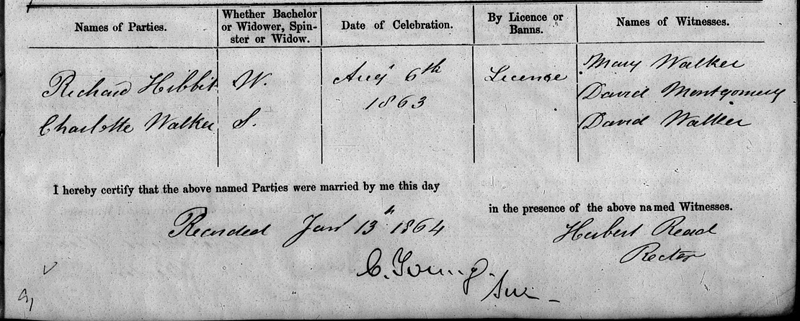 Names of Parties.
Whether Bachelor
or Widower, Spin-
ster or Widow.
Date of Celebration.
By Licence or
Banns.
Names of Witnesses.
Richard Hibbit W. Augt 6th License Mary Walker
1863 David Montgomery
Charlotte Walker S. David Walker
I hereby certify that the above named Parties were married by me this day
in the presence of the above named Witnesses.
Recorded Jany 13th 1864
Herbert Read
Rector
C. Young.